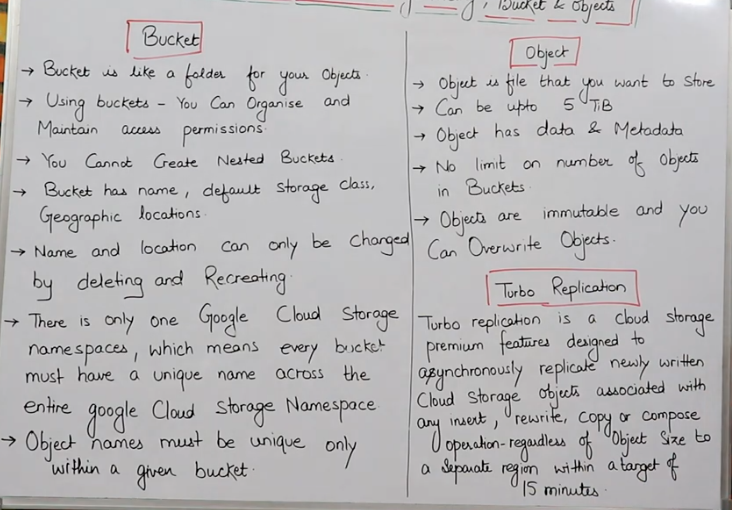 Bucket & Objects
Bucket
→ Bucket is like a folder for your Objects.
→ Using buckets - You Can Organise and
Maintain access permissions.
→ You Cannot Create Nested Buckets.
→ Bucket has name, default storage class,
Geographic locations.
→ Name and location can only be Changed
by deleting and Recreating.
→ There is only one Google Cloud Storage
namespaces, which means every bucket
must have a unique name across the
entire google Cloud Storage Namespace
→ Object names must be unique only
within a given bucket.
Object
→ Object is file that you want to store
→ Can be upto 5 TiB
→ Object has data & Metadata
→ No limit on number of Objects
in Buckets.
→ Objects are immutable and you
Can Overwrite Objects.
Turbo Replication
Turbo replication is a cloud storage
premium features designed to
asynchronously replicate newly written
Cloud Storage objects associated with
any insert, rewrite, copy or compose
operation-regardless of Object Size to
a separate region within a target of
15 minutes.